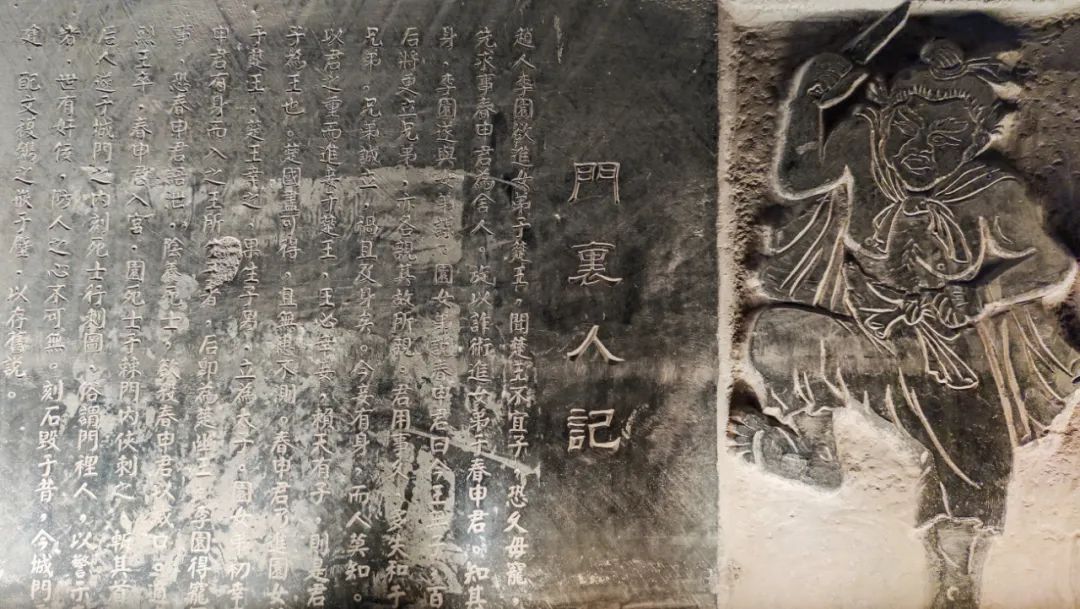 門裏人記
趙人李園欲進女弟于楚王，聞楚王不宜子，恐久毋寵，
先求事春申君為舍人。旋以詐術進女弟于春申君。知其
身，李園遂與女弟謀。園女弟説春申君曰今王無子，百
后將更立兄弟，亦各親其故所親。君用事久，多失和于
兄弟。兄弟誠立，禍且及身矣。今妾有身，而人莫知。
以君之重而進妾于楚王，王必幸妾，賴天有子，則是君
子為王也。楚國盡可得，且無患不測。春申君乃進園女
于楚王，楚王幸之，果生子男，立為太子。園女弟初幸
申君有身而入之王所生者，后即為楚幽王。李園得寵
事，恐春申君語泄，陰養死士，欲殺春申君以滅口。適
烈王卒，春申君入宮，園死士于棘門內俠刺之，斬其首
后人遂于城門之內刻死士行刺圖，俗謂門裡人，以警示
者，世有奸佞，防人之心不可無。刻石毀于昔，今城門
建，配文複鐫之嵌于壁，以存舊說。